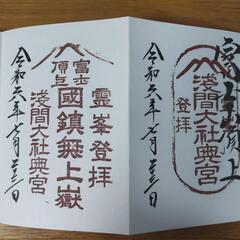 富士山頂上
淺間大社奥宮
登拝
令和六年七月三十一日
靈峯登拝
富士
頂上
國鎮無上嶽
淺間大社奥宮
令和六年七月三十一日